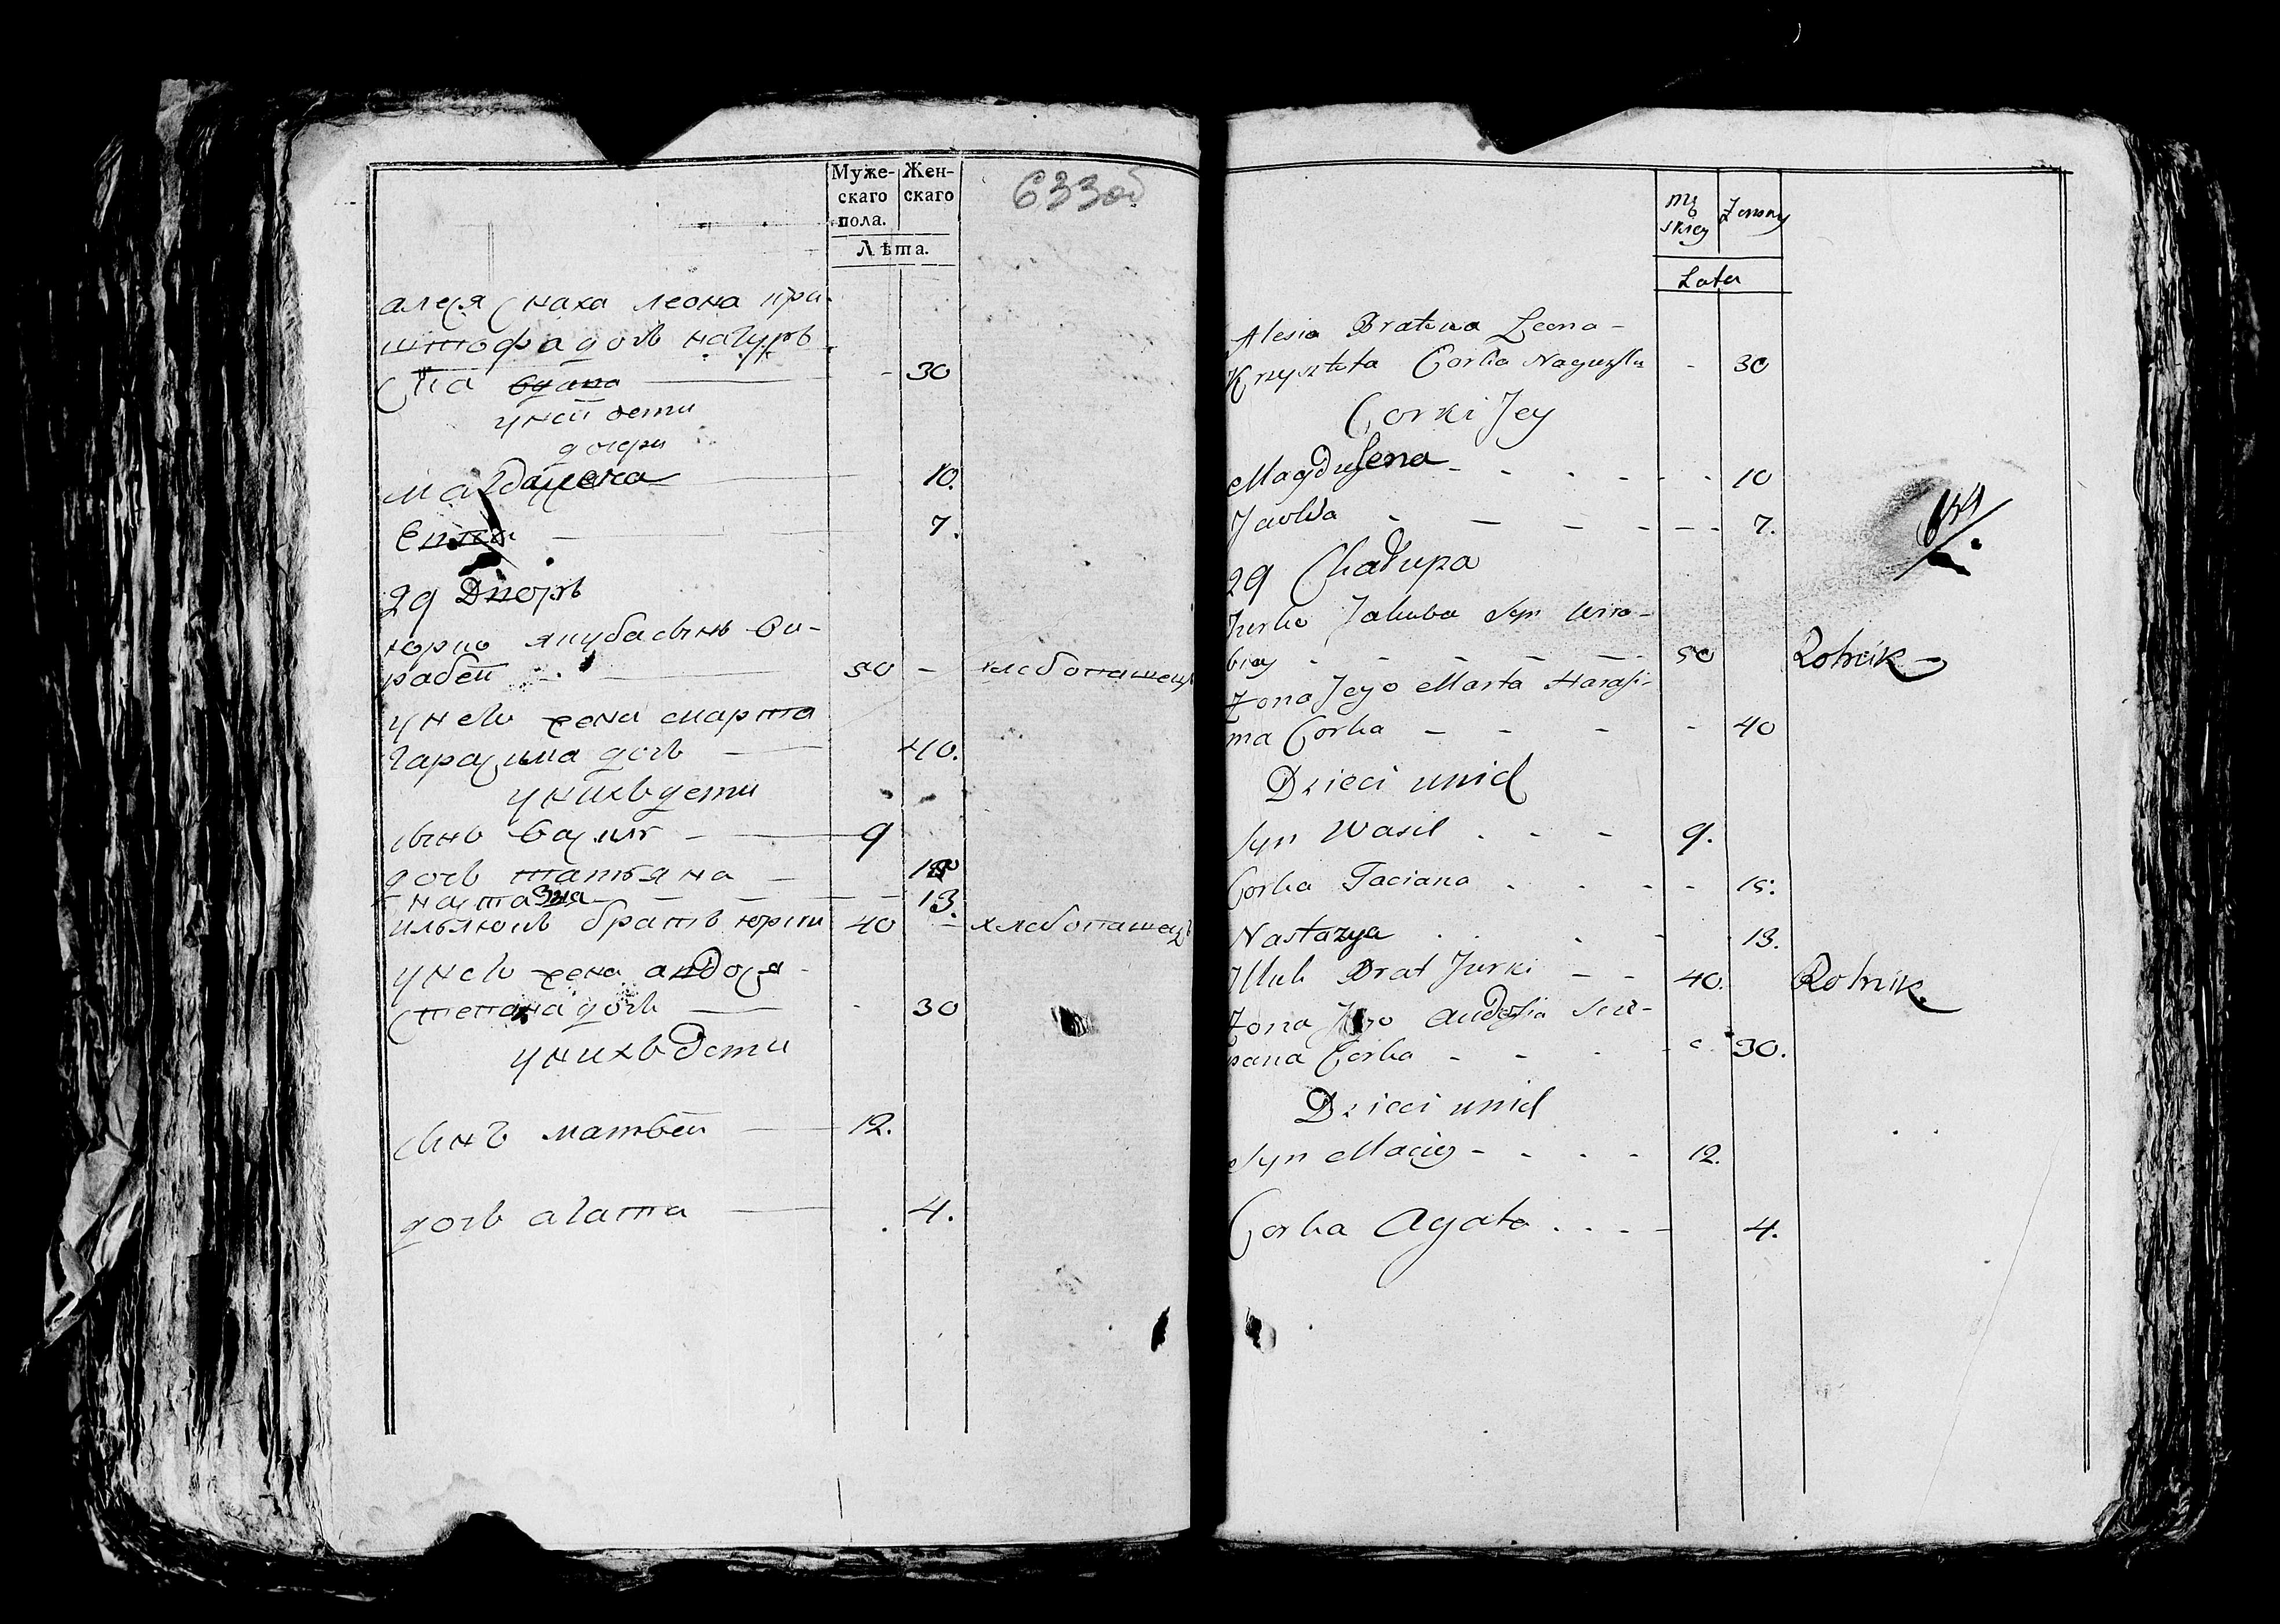 Муже-
скаго
пола.
Жен-
скаго
Лѣта.
633 об
алеся снаха леона кри
штофа дочь
30
у ней дети
дочери
магдалена 10.
7.
29 Дворъ
юрко якуба сынъ ви-
рабей 50 - хлебопашецъ
у него жена марта
гарасима дочь 40.
у нихъ дети
сынъ василь 9
дочь татьяна
настазия 13.
ильлюкъ братъ юрки 40 - хлебопашецъ
у него жена андося
степана дочь - 30
у нихъ дети
сынъ матвей 12.
дочь агата 4.
mę
skiey
Zenskiy
Lata
Alesia Bratowa Leona -
Krzysztofa Corka - 30
Corki Jey
Magdulena - - - - - 10
- - - - - 7.
29 Chałupa
Jurko Jakuba Syn Wira-
biey - - - - - 50 Rolnik
Zona Jego Marta Harasi-
ma Corka - - - - 40
Dzieci unich
Syn Wasil - - - 9.
Corka Taciana - - - - 15.
Nastazya - - - 13.
Illuk Brat Jurki - - 40. Rolnik
Zona Jego Andosia Scie-
pana Corka - - - 30.
Dzieci unich
Syn Maciey - - - - 12.
Corka Agata . . . - 4.